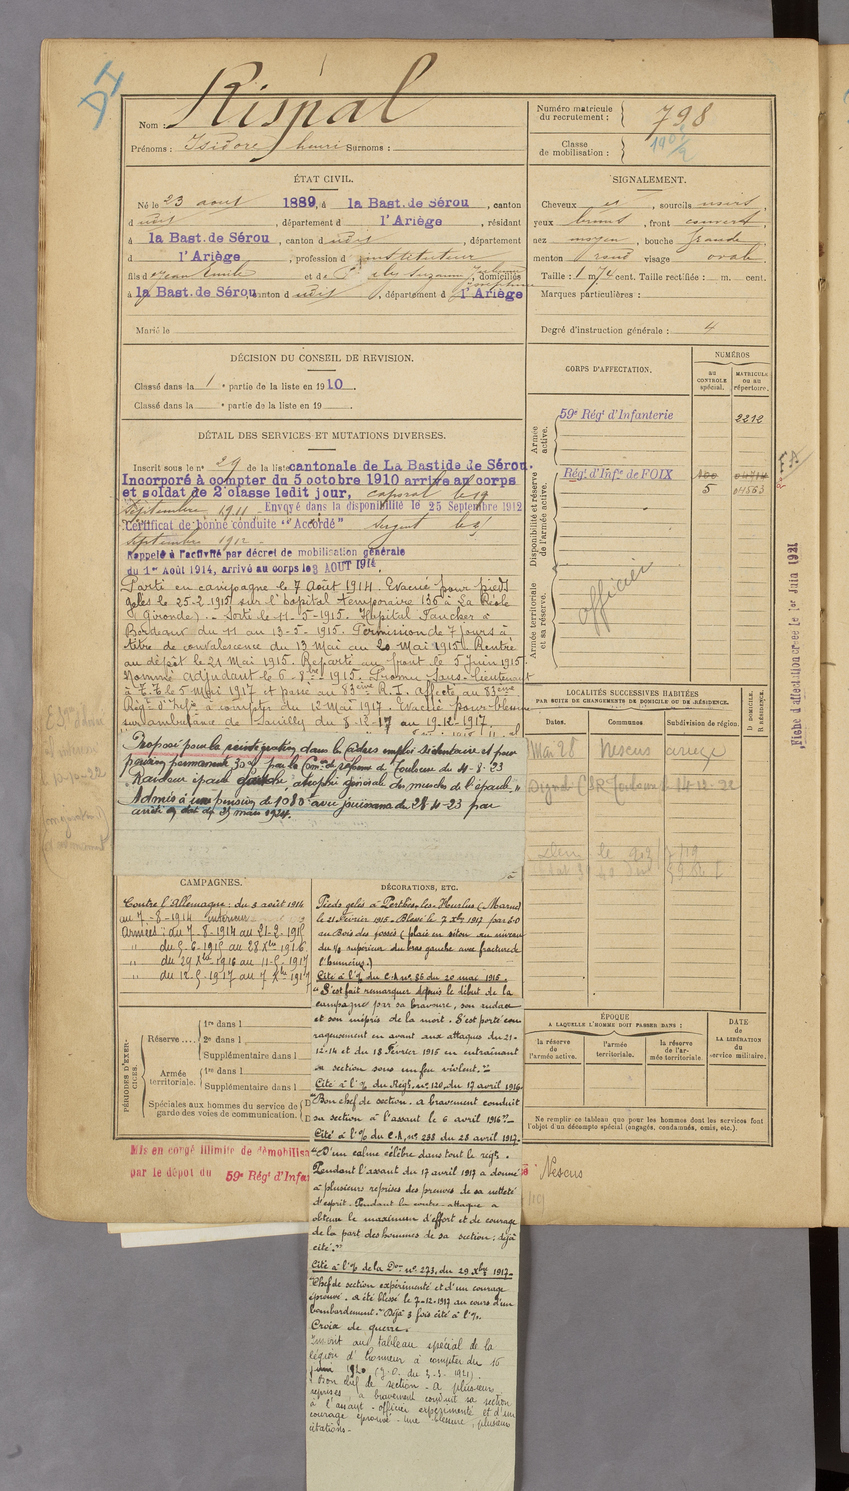 Rispal
Nom :
Prénoms : Isidore henri Surnoms :
Numéro matricule
du recrutement : 798
Classe
de mobilisation : 1909
ÉTAT CIVIL.
Né le 23 aout 1889, à la Bast. de Sérou, canton
dudit, département d l'Ariège, résidant
à la Bast. de Sérou, canton dudit, département
d l'Ariège, profession d instituteur
fils d Jean Emile et de domiciliés
à la Bast. de Sérou canton dudit, département d l'Ariège
Marié le
SIGNALEMENT.
Cheveux et, sourcils noirs,
yeux bruns, front couvert,
nez moyen, bouche grande
menton rond visage ovale
Taille : 1 m 74 cent. Taille rectifiée : m. cent.
Marques particulières :
Degré d'instruction générale : 4
DÉCISION DU CONSEIL DE REVISION.
Classé dans la 1 e partie de la liste en 1910.
Classé dans la e partie de la liste en 19
CORPS D'AFFECTATION.
NUMÉROS
au
contrôle
spécial.
MATRICULE
ou au
répertoire.
Armée
active.
59e Régt d'Infanterie 2212
Disponibilité et réserve
de l'armée active.
Régt d'Infie de FOIX 100
5 04563
Armée territoriale
et sa réserve.
officier
Fiche d'affectation créée le 1er Juin 1921
DÉTAIL DES SERVICES ET MUTATIONS DIVERSES.
Inscrit sous le n° 29 de la liste cantonale de La Bastide de Sérou.
Incorporé à compter du 5 octobre 1910 arrivé au corps
et soldat de 2e classe ledit jour, caporal le 19
Septembre 1911 - Envoyé dans la disponibilité le 25 Septembre 1912
Certificat de bonne conduite "Accordé" Sergent le 9
Septembre 1912 -
Rappelé à l'activité par décret de mobilisation générale
du 1er Août 1914, arrivé au corps le 3 AOUT 1914.
Parti en campagne le 7 Août 1914. Evacué pour pieds
gelés le 25-2-1915 sur l'hôpital temporaire 136 à La Réole
(Gironde). - Sorti le 11-5-1915. Hôpital Faucher à
Bordeaux du 11 au 13-5-1915. Permission de 7 jours à
titre de convalescence du 13 Mai au 20 Mai 1915. Rentré
au dépôt le 21 Mai 1915. Reparti au front le 5 Juin 1915.
Nommé adjudant le 6-8bre-1915. Promu Sous-Lieutenant
à T.T. le 5 Mai 1917 et passé au 83ème R.I. Affecté au 83ème
Régt d'Infie à compter du 12 Mai 1917. Evacué pour blessure
sur ambulance de Souilly du 8-12-17 au 19-12-1917.
Proposé pour la réintégration dans les Cadres emploi sédentaire et pour
pension permanente 30% par la Comon de réforme de Toulouse du 4-8-23
"Raideur épaule gauche, atrophie générale des muscles de l'épaule."
Admis à une pension de 1080f avec jouissance du 28-4-23 par
arrêté du 29 mars 1924.
LOCALITÉS SUCCESSIVES HABITÉES
PAR SUITE DE CHANGEMENTS DE DOMICILE OU DE RÉSIDENCE.
Dates. Communes. Subdivision de région.
D DOMICILE.
R RÉSIDENCE.
Mai 28 Nescus ariège
CAMPAGNES.
Contre l'Allemagne : du 3 août 1914
au 7-8-1914 intérieur
Armées : du 7-8-1914 au 21-2-1915
" du 5-6-1915 au 28 Xbre 1916
" du 29 Xbre 1916 au 11-5-1917
" du 12-5-1917 au 7 Xbre 1917
DÉCORATIONS, ETC.
Pieds gelés à Perthes-les-Hurlus (Marne)
le 21 Février 1915. Blessé le 7 Xbre 1917 par E.O
au Bois des Fossés (plaie en séton au niveau
du 1/3 supérieur du bras gauche avec fracture de
l'humérus.)
Cité à l'O/ du C.A n° 85 du 20 mai 1915.
"S'est fait remarquer depuis le début de la
campagne par sa bravoure, son audace
et son mépris de la mort. S'est porté cou
rageusement en avant aux attaques du 21-
12-14 et du 18 Février 1915 en entraînant
sa section sous un feu violent."
Cité à l'O/ du Régt, n° 120, du 17 avril 1916.
"Bon chef de section. a bravement conduit
sa section à l'assaut le 6 avril 1916".
Cité à l'O/ du C.A, n° 238 du 28 avril 1917.
"D'un calme célèbre dans tout le régt.
Pendant l'assaut du 17 avril 1917 a donné
à plusieurs reprises des preuves de sa netteté
d'esprit. Pendant la contre-attaque a
obtenu le maximum d'effort et de courage
de la part des hommes de sa section ; déjà
cité."
Cité à l'O/ de la Don n° 273, du 29 Xbre 1917-
"Chef de section expérimenté et d'un courage
éprouvé. a été blessé le 7-12-1917 au cours d'un
bombardement." Déjà 3 fois cité à l'O/.
Croix de guerre.
Inscrit au tableau spécial de la
légion d'honneur à compter du 16
juin 1920 (J.O. du 3-3-1921).
"Bon chef de section - A plusieurs
reprises, a bravement conduit sa section
à l'assaut - officier expérimenté et d'un
courage éprouvé - une blessure, plusieurs
citations -
PÉRIODES D'EXERCICES.
Réserve ....
1re dans l
2e dans l
Supplémentaire dans l
Armée
territoriale.
1re dans l
Supplémentaire dans l
Spéciales aux hommes du service de
garde des voies de communication.
ÉPOQUE
A LAQUELLE L'HOMME DOIT PASSER DANS :
la réserve
de l'armée active.
l'armée
territoriale.
la réserve
de l'ar-
mée territoriale.
DATE
de
LA LIBÉRATION
du
service militaire.
Ne remplir ce tableau que pour les hommes dont les services font
l'objet d'un décompte spécial (engagés, condamnés, omis, etc.).
Mis en congé illimité de démobilisa
par le dépôt du 59e Régt d'Infan
Nescus